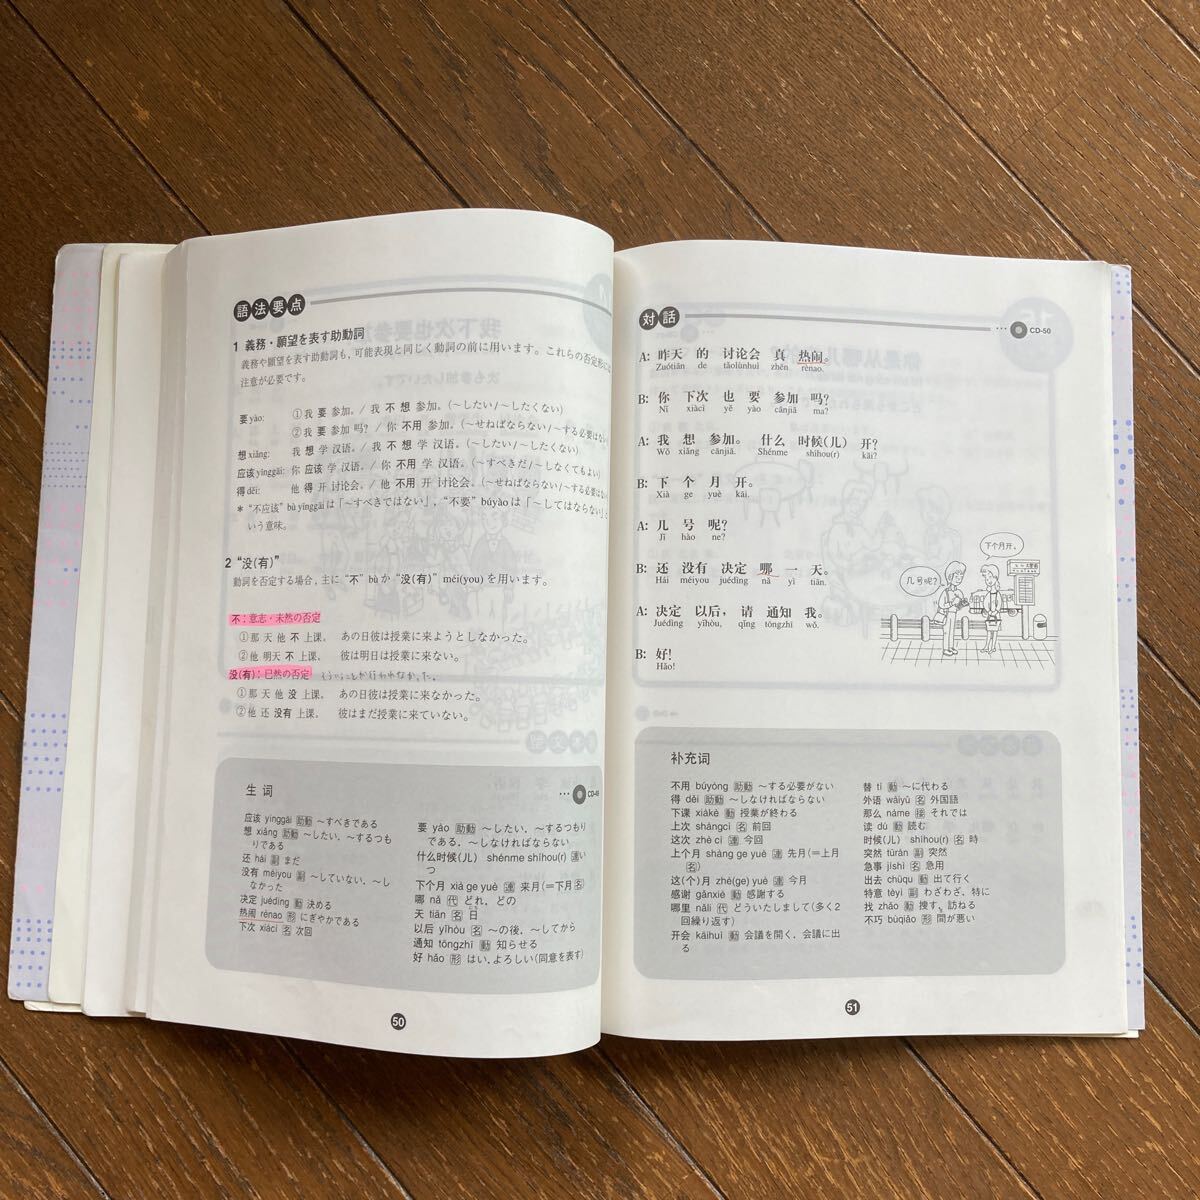 語法要点
1 義務・願望を表す助動詞
義務や願望を表す助動詞も、可能表現と同じく動詞の前に用います。これらの否定形には
注意が必要です。
要yào: ①我 要 参加。/ 我 不 想 参加。(〜したい/〜したくない)
②我 要 参加 吗? / 你 不用 参加。(〜せねばならない/〜する必要はない
想xiǎng: 我 想 学 汉语。/ 我 不 想 学 汉语。(〜したい/〜したくない)
应该yīnggāi: 你 应该 学 汉语。/ 你 不用 学 汉语。(〜すべきだ/〜しなくてもよい)
得děi: 他 得 开 讨论会。/ 他 不用 开 讨论会。(〜せねばならない/〜する必要
* “不应该” bù yīnggāi は「〜すべきではない」, “不要” búyào は「〜してはならない」と
いう意味。
2 “没(有)”
動詞を否定する場合、主に “不” bù か “没(有)” méi(you) を用います。
不：意志・未然の否定
①那 天 他 不 上课。 あの日彼は授業に来ようとしなかった。
②他 明天 不 上课。 彼は明日は授業に来ない。
没(有)：已然の否定 そういうことが行われなかった。
①那 天 他 没 上课。 あの日彼は授業に来なかった。
②他 还 没有 上课。 彼はまだ授業に来ていない。
生 词
… CD-49
应该 yīnggāi 助動 〜すべきである
想 xiǎng 助動 〜したい、〜するつも
りである
还 hái 副 まだ
没有 méiyou 副 〜していない、〜し
なかった
决定 juédìng 動 決める
热闹 rènao 形 にぎやかである
下次 xiàcì 名 次回
要 yào 助動 〜したい、〜するつもり
である、〜しなければならない
什么时候(儿) shénme shíhou(r) 連 い
つ
下个月 xià ge yuè 連 来月(＝下月名)
哪 nǎ 代 どれ、どの
天 tiān 名 日
以后 yǐhòu 名 〜の後、〜してから
通知 tōngzhī 動 知らせる
好 hǎo 形 はい、よろしい(同意を表す)
50
対話
… CD-50
A: 昨天 的 讨论会 真 热闹。
Zuótiān de tǎolùnhuì zhēn rènao.
B: 你 下次 也 要 参加 吗?
Nǐ xiàcì yě yào cānjiā ma?
A: 我 想 参加。 什么 时候(儿) 开?
Wǒ xiǎng cānjiā. Shénme shíhou(r) kāi?
B: 下 个 月 开。
Xià ge yuè kāi.
A: 几 号 呢?
Jǐ hào ne?
B: 还 没有 决定 哪 一 天。
Hái méiyou juédìng nǎ yì tiān.
A: 决定 以后, 请 通知 我。
Juédìng yǐhòu, qǐng tōngzhī wǒ.
B: 好!
Hǎo!
下个月开。
几号呢?
补充词
不用 búyòng 助動 〜する必要がない
得 děi 助動 〜しなければならない
下课 xiàkè 動 授業が終わる
上次 shàngcì 名 前回
这次 zhè cì 連 今回
上个月 shàng ge yuè 連 先月(＝上月
名)
这(个)月 zhè(ge) yuè 連 今月
感谢 gǎnxiè 動 感謝する
哪里 nǎli 代 どういたしまして(多く2
回繰り返す)
开会 kāihuì 動 会議を開く、会議に出
る
替 tì 動 〜に代わる
外语 wàiyǔ 名 外国語
那么 nàme 接 それでは
读 dú 動 読む
时候(儿) shíhou(r) 名 時
突然 tūrán 副 突然
急事 jíshì 名 急用
出去 chūqu 動 出て行く
特意 tèyì 副 わざわざ、特に
找 zhǎo 動 捜す、訪ねる
不巧 bùqiǎo 形 間が悪い
51